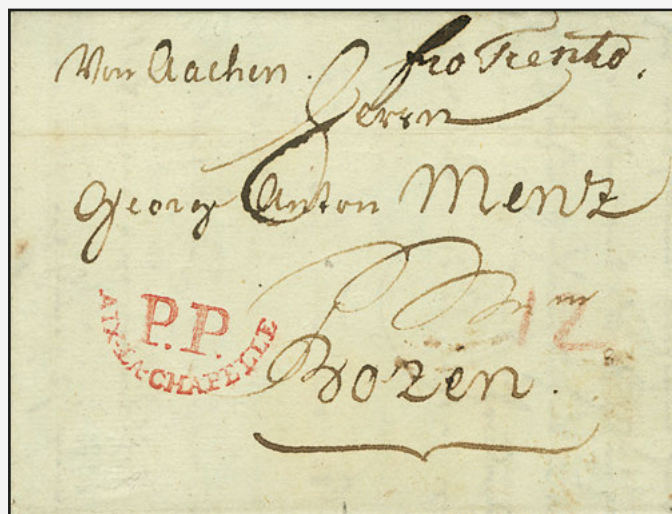 Von Aachen. fro Trento.
Herrn
Georg Anton Menz
P.P.
AIX-LA-CHAPELLE
12
Bozen.